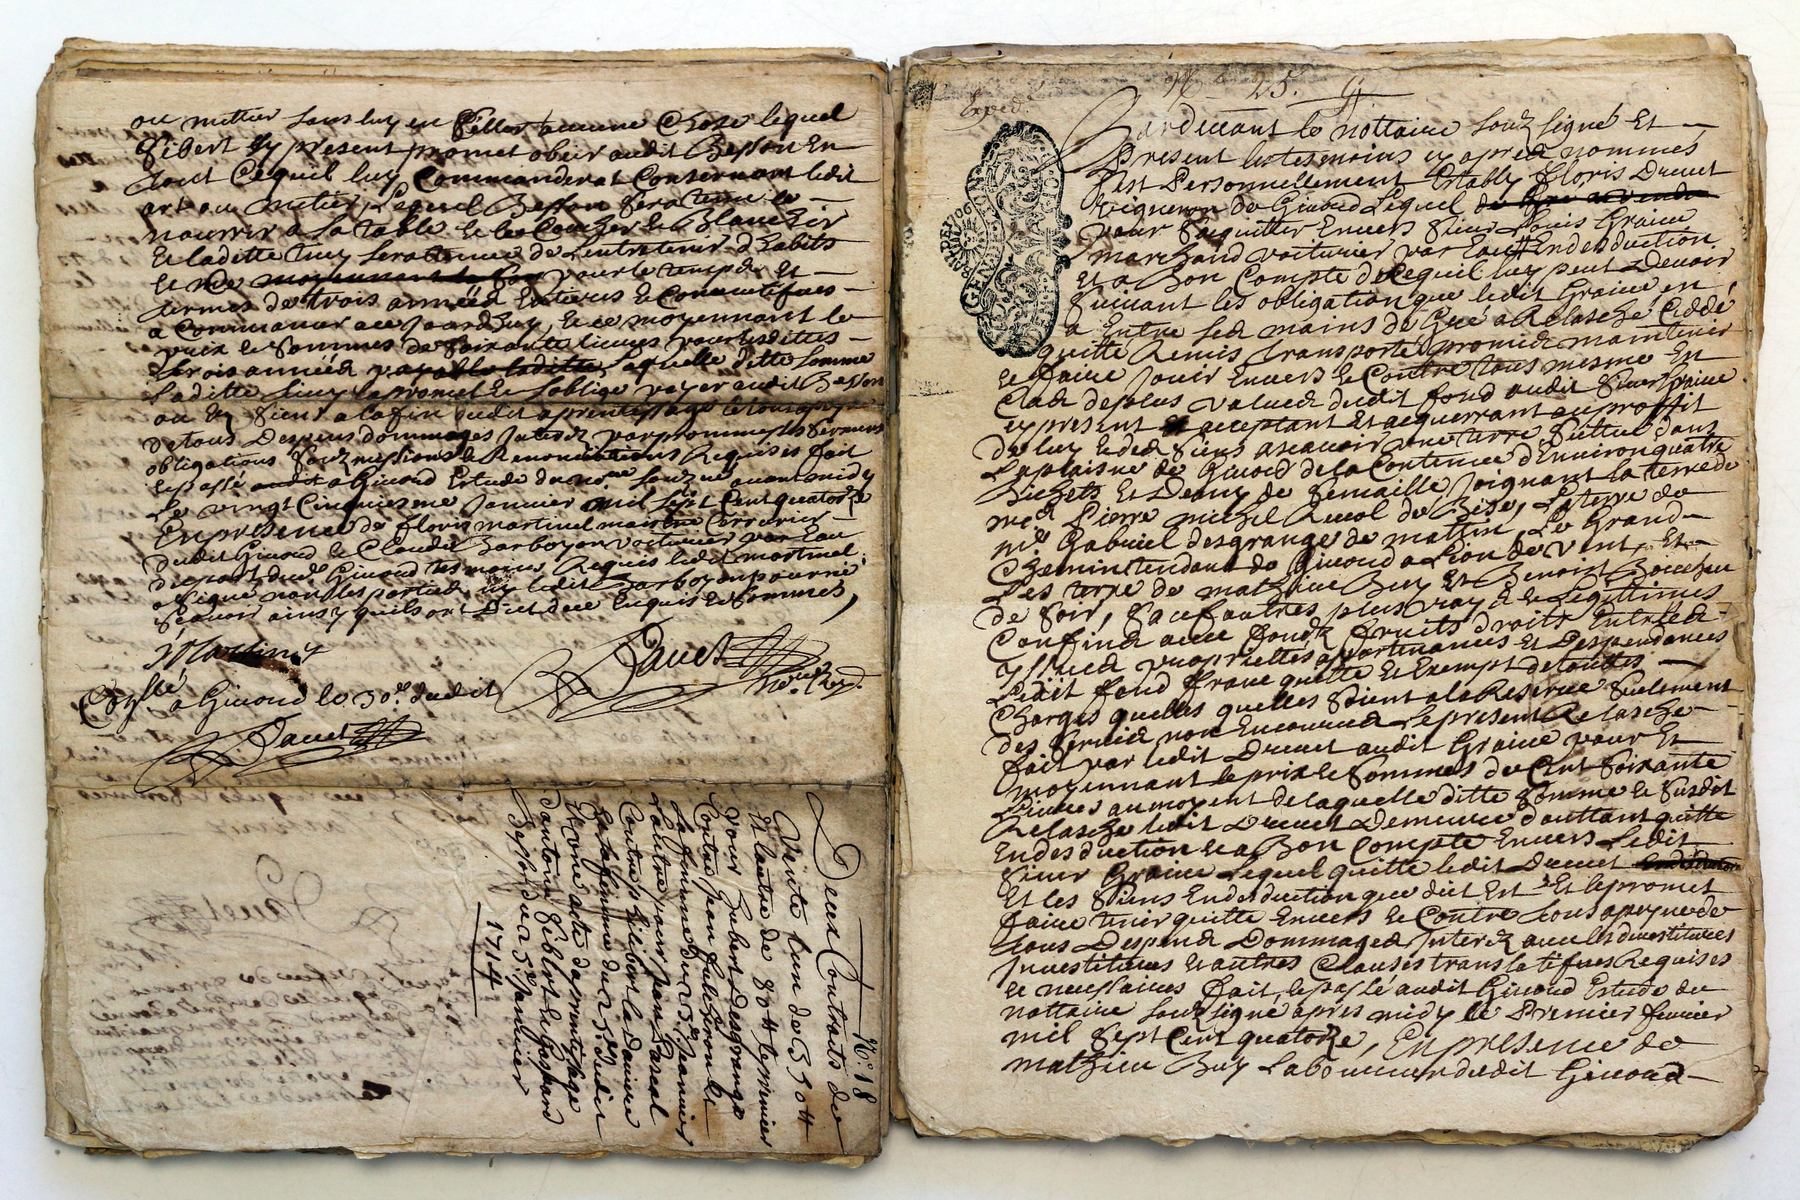 ou mettier sans luy en Celler aucune Chose lequel
Gibert Cy present promet obeir audit Besson En
tout Cequil luy Commanderat Consernant ledit
art ou mettier, Lequel Besson sera tenu le
nourrir a sa table le Coucher le Blanchir
Et ladite sera tenue de Lentretenir d'habits
pour le temps Et
termes de trois années Entieres Et Consecutifves
a Commancer ce Jourdhuy, Et ce moyennant le
prix Et sommes de soixante livres pour lesdittes
trois années laquelle ditte somme
laditte promet Et soblige payer audit Besson
ou siens a la fin dudit aprentissage
de tous Despens dommages Interetz par promesses serment
obligations soubzmissions Et Renonciations Requises fait
Et passé audit Givord Estude du no.re soubz.né avant midy
Le vingt Cinquiesme Janvier mil sept Cent quatorze
En presence de floris martinel maistre serrurier
dudit Givord Et Claude Barboyon voiturier par Eau
dudit Givord tesmoins Requis ledit martinel
a signé non les parties ny ledit Barboyon pour ne
sçavoir ainsy quils ont Dict de ce Enquis Et sommés,
Martinel
Pauet
a Givord le 30.e dudit
Pauet
N.o 18
Deux Contraits de
Vente l'un de
Et lautre de le premier
pour hubert Desgrange
Contre Jean
sa femme du 23.e Janvier
Lautre pour Jean Pascal
Contre philibert
Et sa femme du 25.e dudit
Et un acte daprentissage
dantoine Gibert Et Gaspard
Besson du 25.e Janvier
1714
N.o 25.
Exped.
GEN. DE LYON
Pardevant le nottaire soubz signé Et
Present les tesmoins cy apres nommés
fust Personnellement Estably floris Drevet
vigneron de Givord Lequel
pour sacquitter Envers sieur Louis Graine
marchand voiturier par Eau Endesduction
et a Bon Compte de Cequil luy peut Devoir
suivant les obligation que ledit Graine en
a Entre ses mains de Gré a Relasché Ceddé
quitté Remis transporté promis maintenir
Et faire Jouir Envers Et Contre tous mesme En
Cas deplus values dudit fond audit sieur Graine
cy present Et acceptant Et acquerrant au proffit
De luy Et des siens ascavoir une terre sittué dans
La plaisne de Givord de la Contenue d'Environ quatre
Bichets Et Demy de semaille Joignant la terre de
Pierre michel de Bise, La terre de
Gabriel desgrange de mattin, Le Grand
Chemin tendant de Givord a Lion de vent, Et
Les terre de mathieu Buy Et Benoist
de soir, sauf autres plus vray Et Legittimes
Confins avec fonds fruits droits Entrées
yssues proprietes apartenances Et Despendances
Ledit fond franc quitte Et Exempt de touttes
Charges quelles quelles soient a la Reserve seulement
des servis non Encourus Le present Relasche
fait par ledit Drevet audit Graine pour Et
moyennant le prix Et sommes de Cent soixante
Livres au moyent de laquelle ditte somme Et susdit
Relasche ledit Drevet Demeure dauttant quitte
Endesduction Et a Bon Compte Envers Ledit
sieur Graine Lequel quitte ledit Drevet
Et les siens Endesduction que dict Est Et le promet
faire tenir quitte Envers Et Contre sous a peyne de
tous Despens Dommages Interetz avec les devestitures
Jnvestitures Et autres Clauses translatifves Requises
Et necessaires fait Et passé audit Givord Estude du
nottaire soubz signé apres midy le Premier fevrier
mil sept Cent quatorze, En presence de
mathieu Buy Laboureur dudit Givord